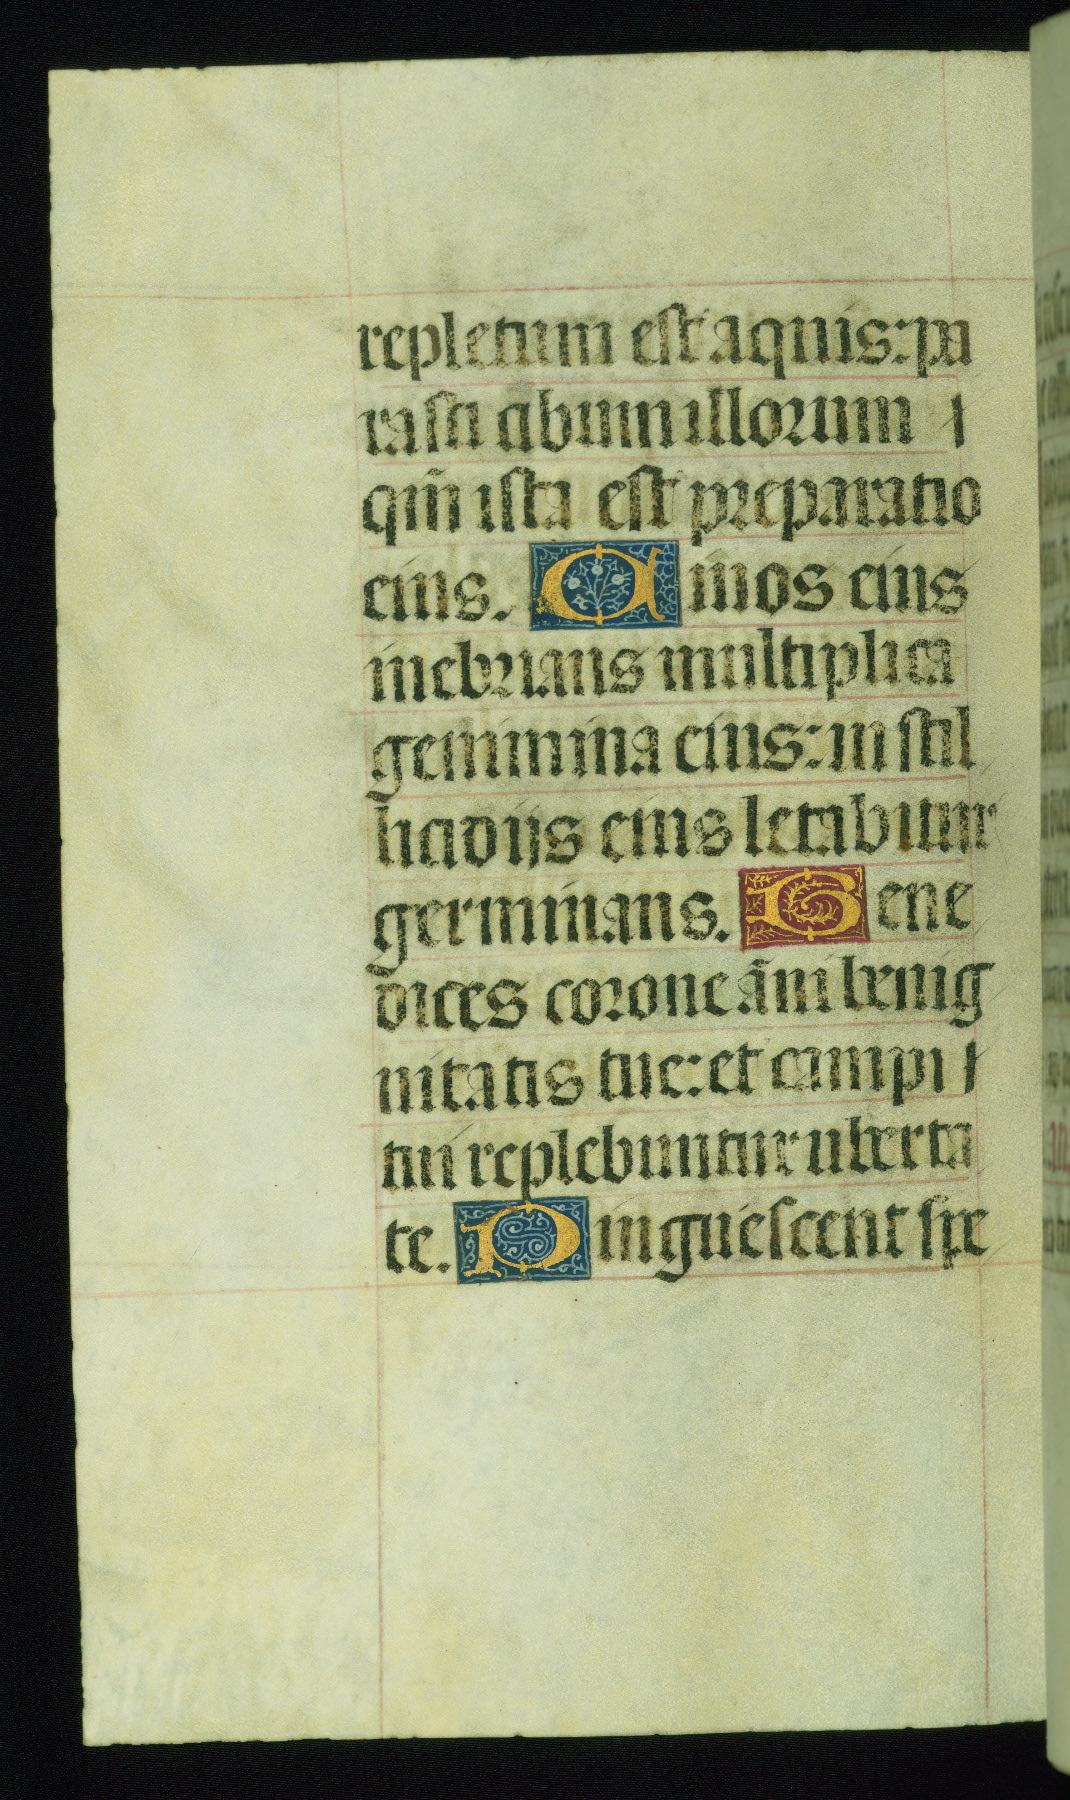 repletum est aquis: pa
rasti cibum illorum
qm̄ ista est preparatio
eius. Riuos eius
inebrians multiplica
genimina eius: in stil
licidijs eius letabitur
germinans. Bene
dices corone āni benig
nitatis tue: et campi
tui replebuntur uberta
te. Pinguescent spe